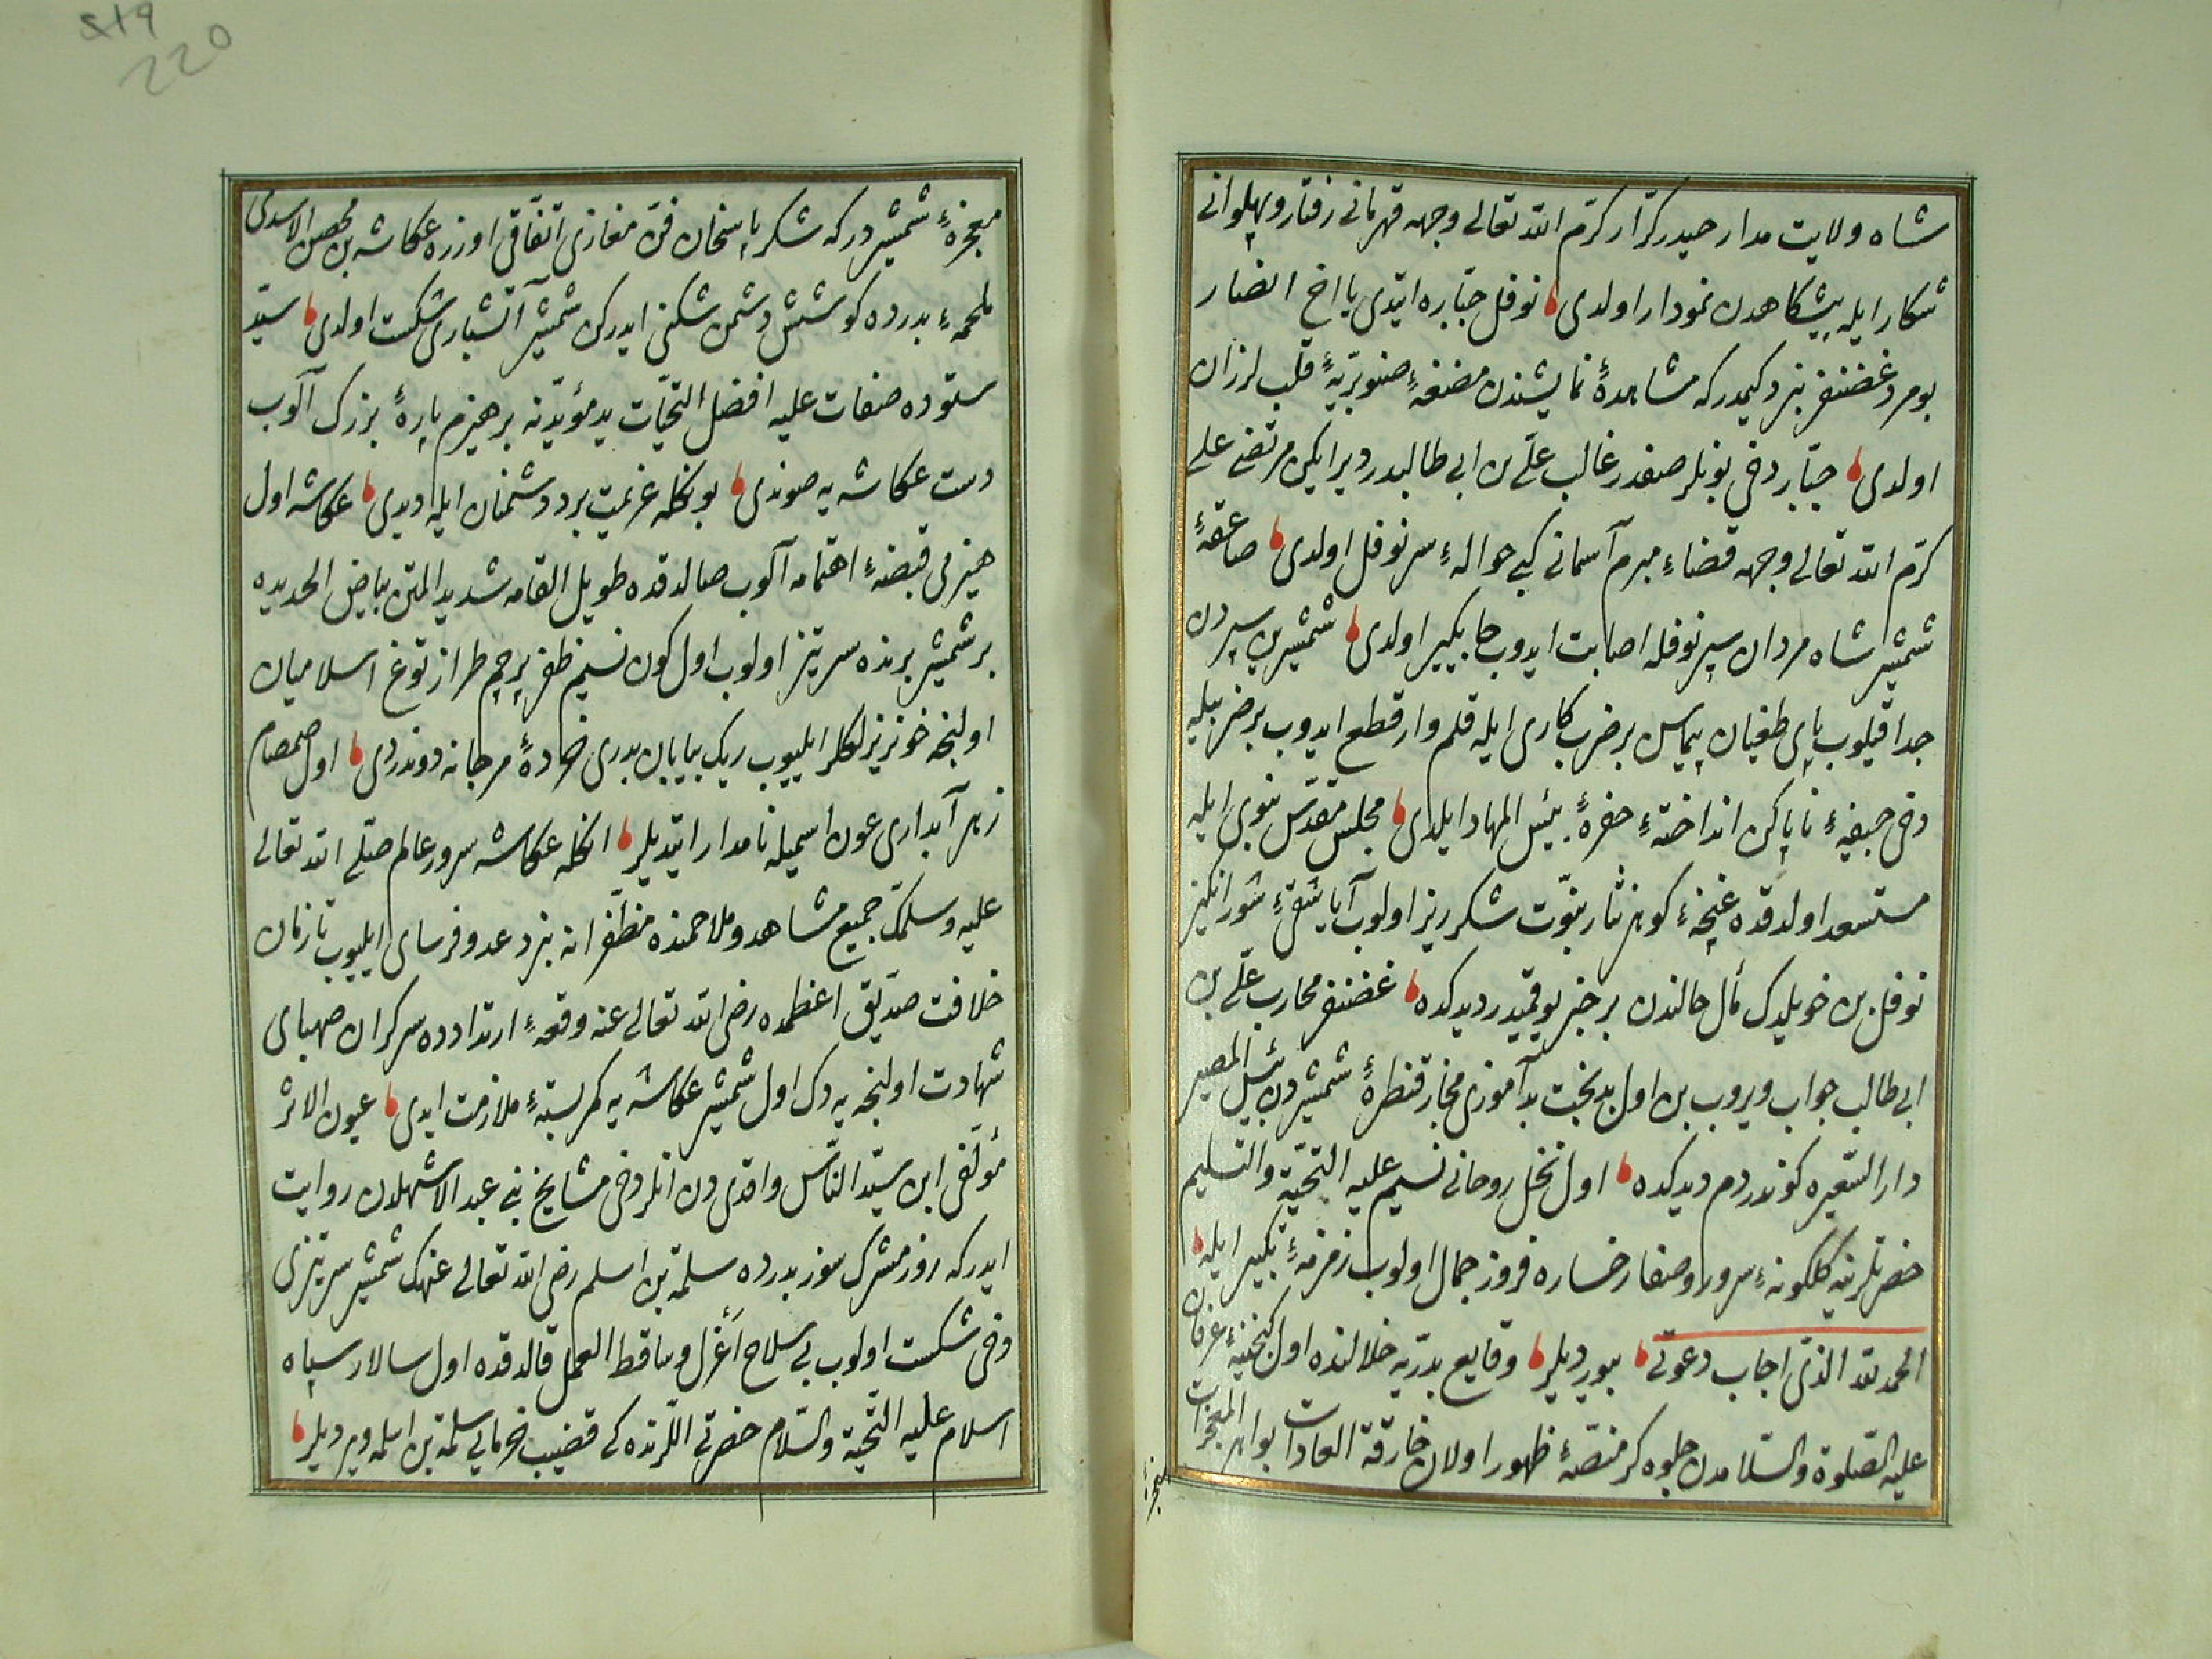 شاه ولايت مدار حيدر كرّار كرّم الله تعالى وجهه قهرمانى رفتار وپهلوانى
شكار ايله پيشكاهدن نمودار اولدى نوفل جبّاره ايتدى يا اخ انصار
بومرد غضنفر نبرد كيمدركه مشاهدهٔ نمايشندن مضغهٔ صنوبريّهٔ قلب لرزان
اولدى جبّار دخى بونلر صفدر غالب علىّ بن ابى طالبدر دير ايكن مرتضى على
كرّم الله تعالى وجهه قضاء مبرم آسمانى كبى حوالهٔ سر نوفل اولدى صاعقهٔ
شمشير شاه مردان سپر نوفله اصابت ايدوب جايكير اولدى شمشيرين سپردن
جدا قيلوب پاى طغيان پيماسن بر ضرب كارى ايله قلم وار قطع ايدوب بر ضربيله
دخى جيفهٔ ناپاكن انداختهٔ حفرهٔ بئس المهاد ايلدى مجلس مقدّس نبوى ايله
مستسعد اولدقده غنچهٔ كوهر نثار نبوّت شكر ريز اولوب آيا شقىّ شور انكيز
نوفل بن خويلدك مآل حالندن بر خبر يوقميدر ديدكده غضنفر محارب علىّ بن
ابى طالب جواب ويروب بن اول بدبخت بد آموزى مجاز قنطرهٔ شمشيردن بئس المصير
دار السّعيره كوندردم ديدكده اول نخل روحانى نسيم عليه التّحيّة والتسليم
حضرتلرينه كلكونهٔ سرور وصفا رخساره فروز جمال اولوب زمزمهٔ تكبير ايله
الحمد لله الذى اجاب دعوتى بيورديلر وقايع بدريّه خلالنده اول كنجينهٔ عرفان
عليه الصّلوة والسّلامدن جلوه كر منصّهٔ ظهور اولان خارقة العادات بواهر المعجزات
معجزهٔ
219
220
معجزهٔ شمشيردركه شكر پاسخان فنّ مغازى اتّفاقى اوزره عكاشه بن محصن الاسدى
ملحمهٔ بدرده كوشش دشمن شكنى ايدركن شمشير آتشبارى شكست اولدى سيّد
ستوده صفات عليه افضل التحيّات يد مؤيّدينه بر هيزم پارهٔ بزرك آلوب
دست عكاشه يه صوندى بونكله عزيمت برد دشمنان ايله ديدى عكاشه اول
هيزمى قبضهٔ اهتمامه آلوب صالدقده طويل القامه شديد المتن بياض الحديده
بر شمشير برنده سر تيز اولوب اول كون نسيم ظفر پرچم طراز توغ اسلاميان
اولنجه خونريزلكلر ايليوب ريك بيابان بدرى خردهٔ مرجانه دوندردى اول صمصام
زهر آبدارى عون اسميله نامدار ايتديلر انكله عكاشه سرور عالم صلّى الله تعالى
عليه وسلمك جميع مشاهد وملاحمنده مظفّرانه نبرد عدو فرساى ايليوب تا زمان
خلافت صدّيق اعظمده رضى الله تعالى عنه وقعهٔ ارتدادده سركران صهباى
شهادت اولنجه يه دك اول شمشير عكاشه يه كمر بستهٔ ملازمت ايدى عيون الاثر
مؤلّفى ابن سيّد النّاس واقدى دن انلر دخى مشايخ بنى عبد الاشهلدن روايت
ايدركه روز مشرك سوز بدرده سلمة بن اسلم رضى الله تعالى عنهك شمشير سر تيزى
دخى شكست اولوب بى سلاح أعزل وساقط العمل قالدقده اول سالار سپاه
اسلام عليه التّحيّة والسّلام حضرتى اللّرنده كى قضيب خرمايى سلمة بن اسلمه ويرديلر